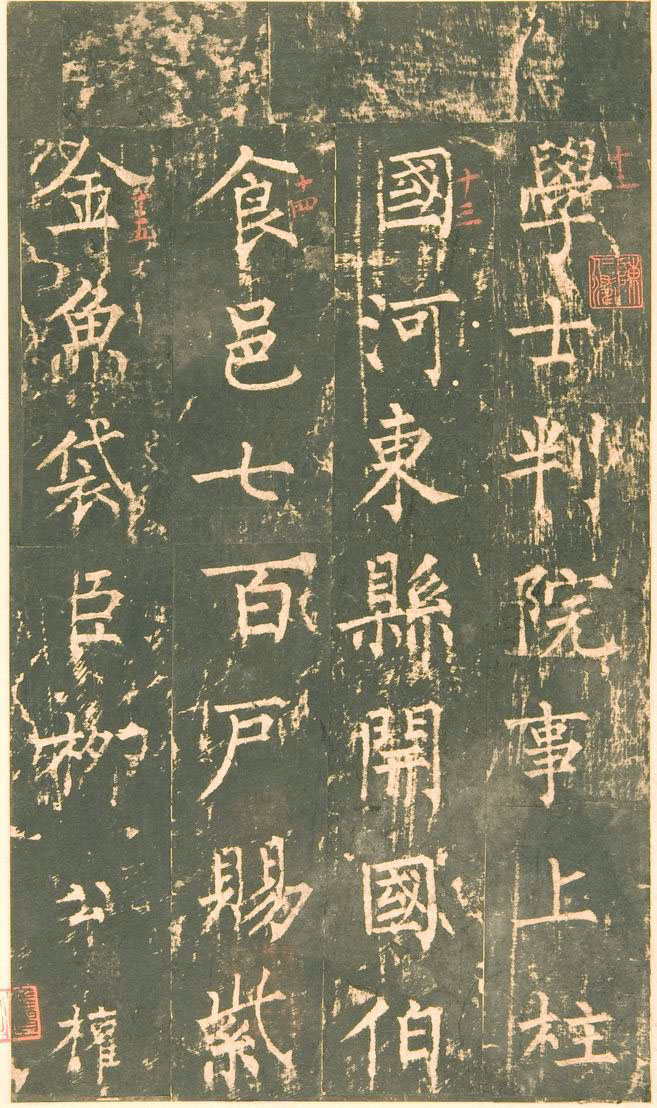 學士判院事上柱
國河東縣開國伯
食邑七百戶賜紫
金魚袋臣柳公權
十二
十三
十四
十五